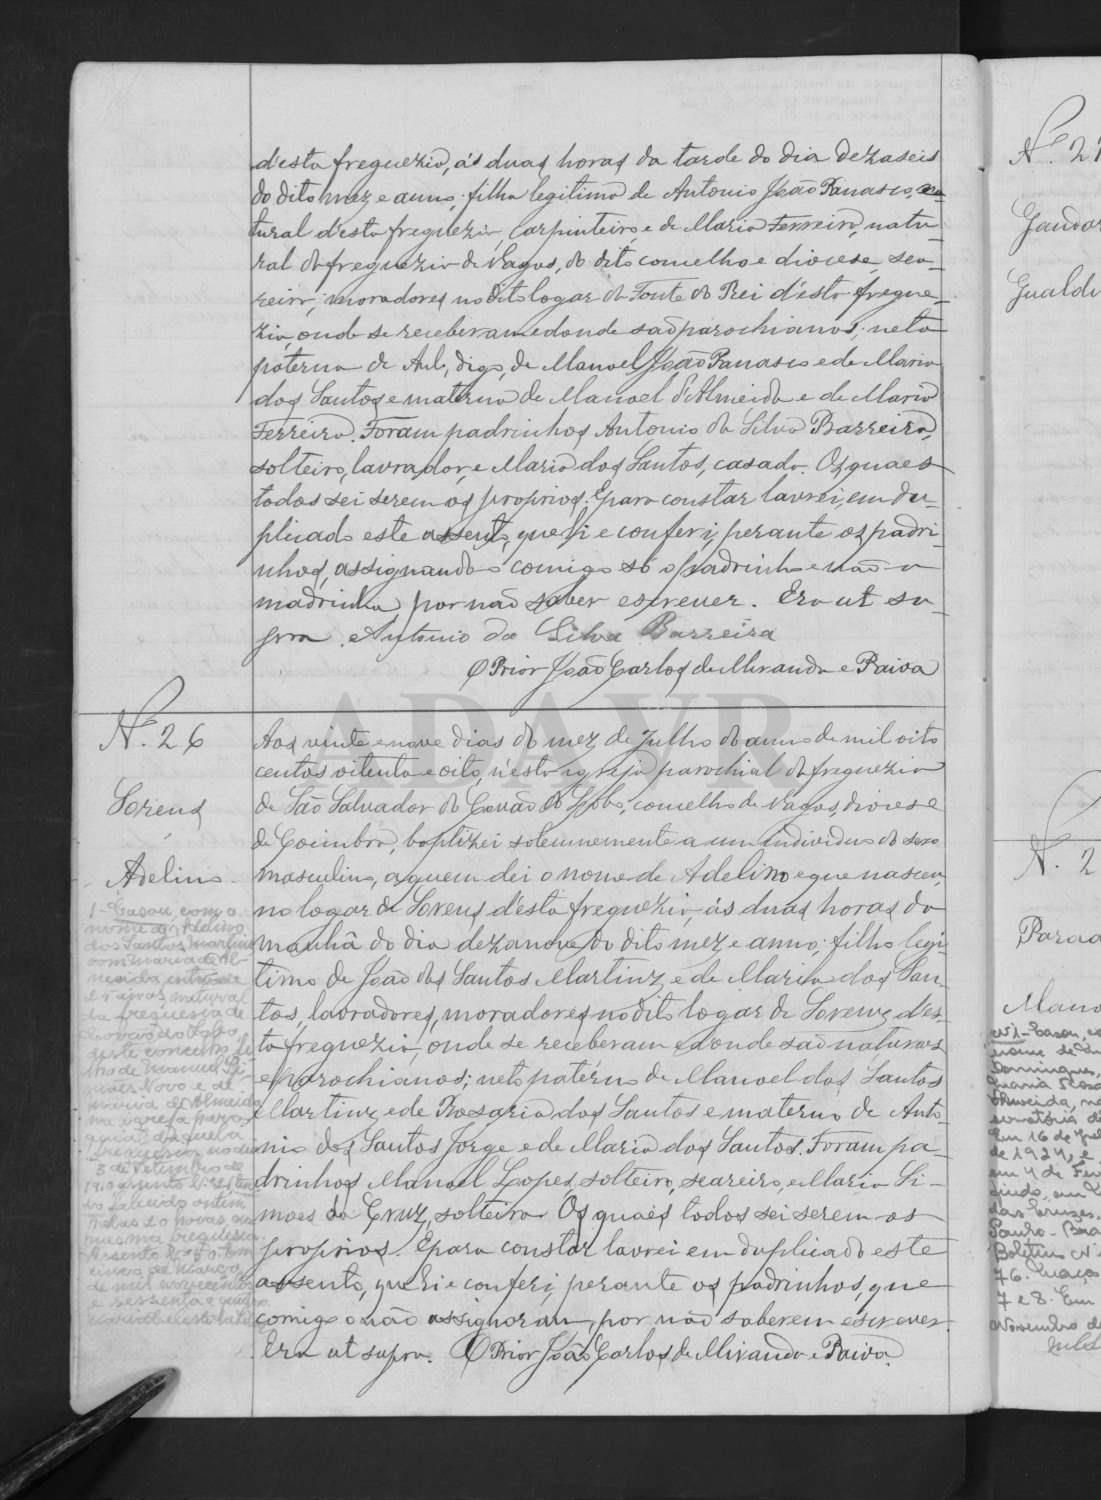 d'esta freguezia, ás duas horas da tarde do dia dezaseis
do dito mez e anno; filha legitima de Antonio João Panasco, na-
tural d'esta freguezia, Carpinteiro, e de Maria Ferreira, natu-
ral da freguezia de Vagos, do dito concelho e diocese, sea-
reira; moradores no dito logar da Fonte do Rei d'esta fregue-
zia, onde se receberam e donde são parochianos; neta
paterna de Anto, digo, de Manoel João Panasco e de Maria
dos Santos e materna de Manoel d'Almeida e de Maria
Ferreira. Foram padrinhos Antonio da Silva Barreira,
solteiro, lavrador, e Maria dos Santos, casada. Os quaes
todos sei serem os proprios. E para constar lavrei, em du-
plicado este assento, que li e conferi, perante os padri-
nhos, assignando comigo só o padrinho e não a
madrinha por não saber escrever. Era ut su-
pra. Antonio da Silva Barreira
O Prior João Carlos de Miranda e Paiva
ADAVR
N.º 26
Sorens
Adelino
Aos vinte e nove dias do mez de Julho do anno de mil oito
centos oitenta e oito, n'esta igreja parochial da freguezia
de São Salvador do Covão do Lobo, concelho de Vagos, diocese
de Coimbra, baptizei solemnemente a um individuo do sexo
masculino, a quem dei o nome de Adelino e que nasceu
no logar de Sorens d'esta freguezia, ás duas horas da
manhã do dia dezanove do dito mez e anno; filho legi-
timo de João dos Santos Martinz e de Maria dos San-
tos, lavradores, moradores no dito logar de Sorenz d'es-
ta freguezia, onde se receberam e donde são naturaes
e parochianos; neto paterno de Manoel dos Santos
Martinz e de Rosaria dos Santos e materno de Anto-
nio dos Santos Jorge e de Maria dos Santos. Foram pa-
drinhos Manoel Lopes, solteiro, seareiro, e Maria Si-
mões da Cruz, solteira. Os quaes todos sei serem os
proprios. E para constar lavrei em duplicado este
assento, que li e conferi, perante os padrinhos, que
comigo não assignaram, por não saberem escrever.
Era ut supra. O Prior João Carlos de Miranda e Paiva.
1-Casou, com o
nome de Adelino
dos Santos Martins
com Maria de Al-
meida
natural
da freguesia de
Covão do Lobo
deste concelho, fi-
lha de Manuel Si-
mões Novo e de
Maria de Almeida
na igreja paro-
quial daquela
freguesia no dia
3 de Setembro de
1910
mesma freguesia.
Assento
cinco de Março
de mil novecentos
e sessenta e quatro
N.º 27
N.º 2